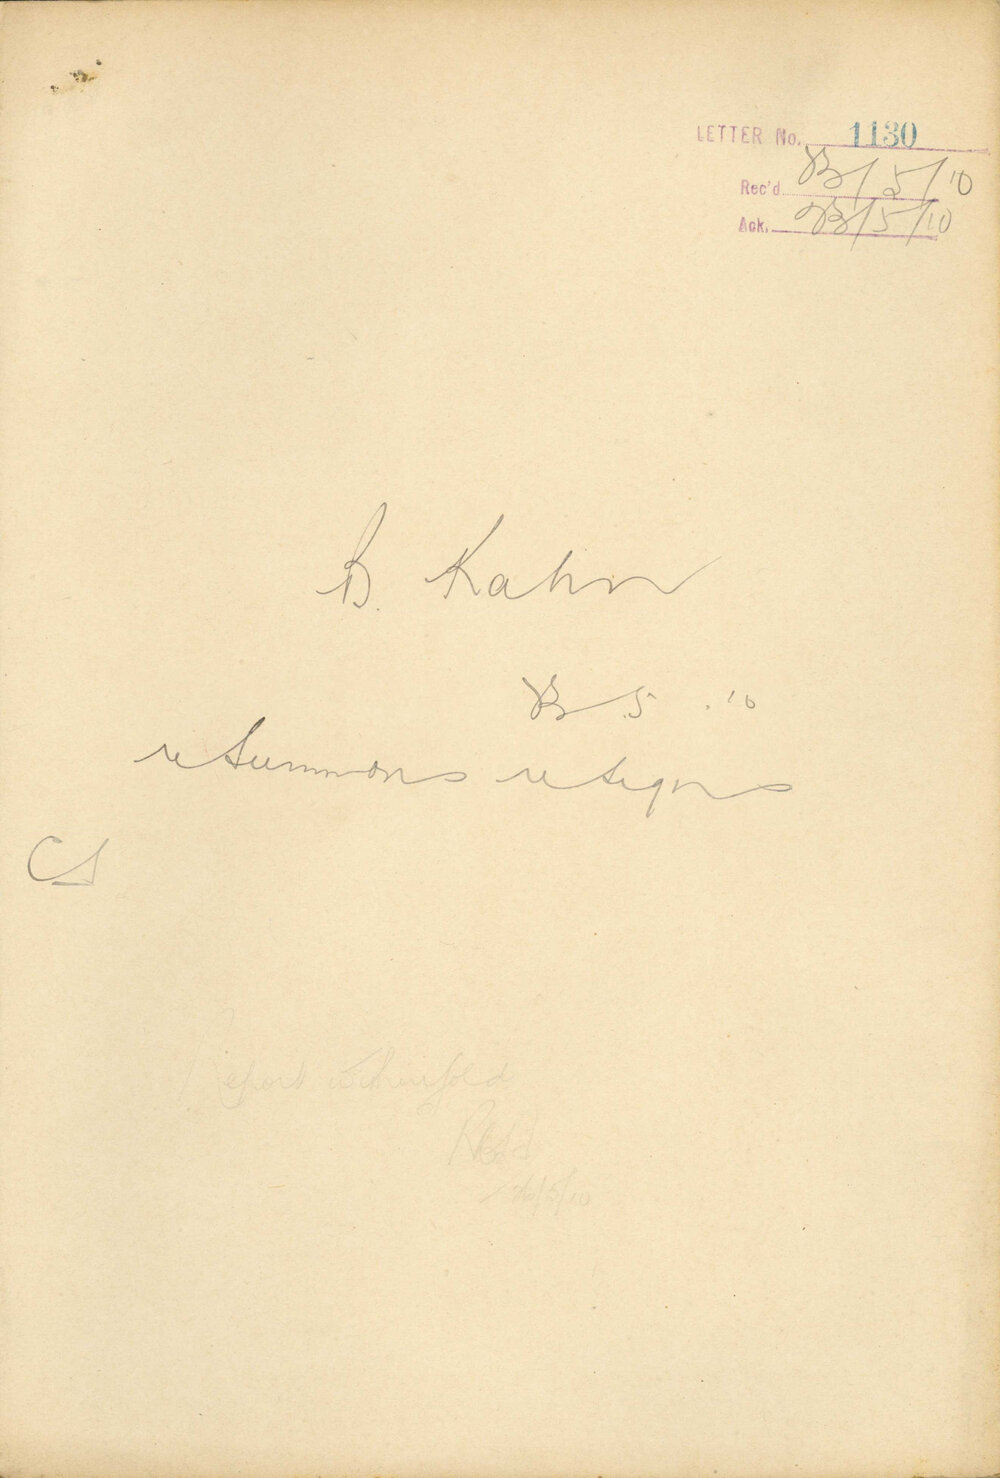 LETTER No. 1130
Rec'd 23/5/10
Ack. 23/5/10
B. Kahn
23 5 . 10
re Summons re signs
CS
Report within
26/5/10